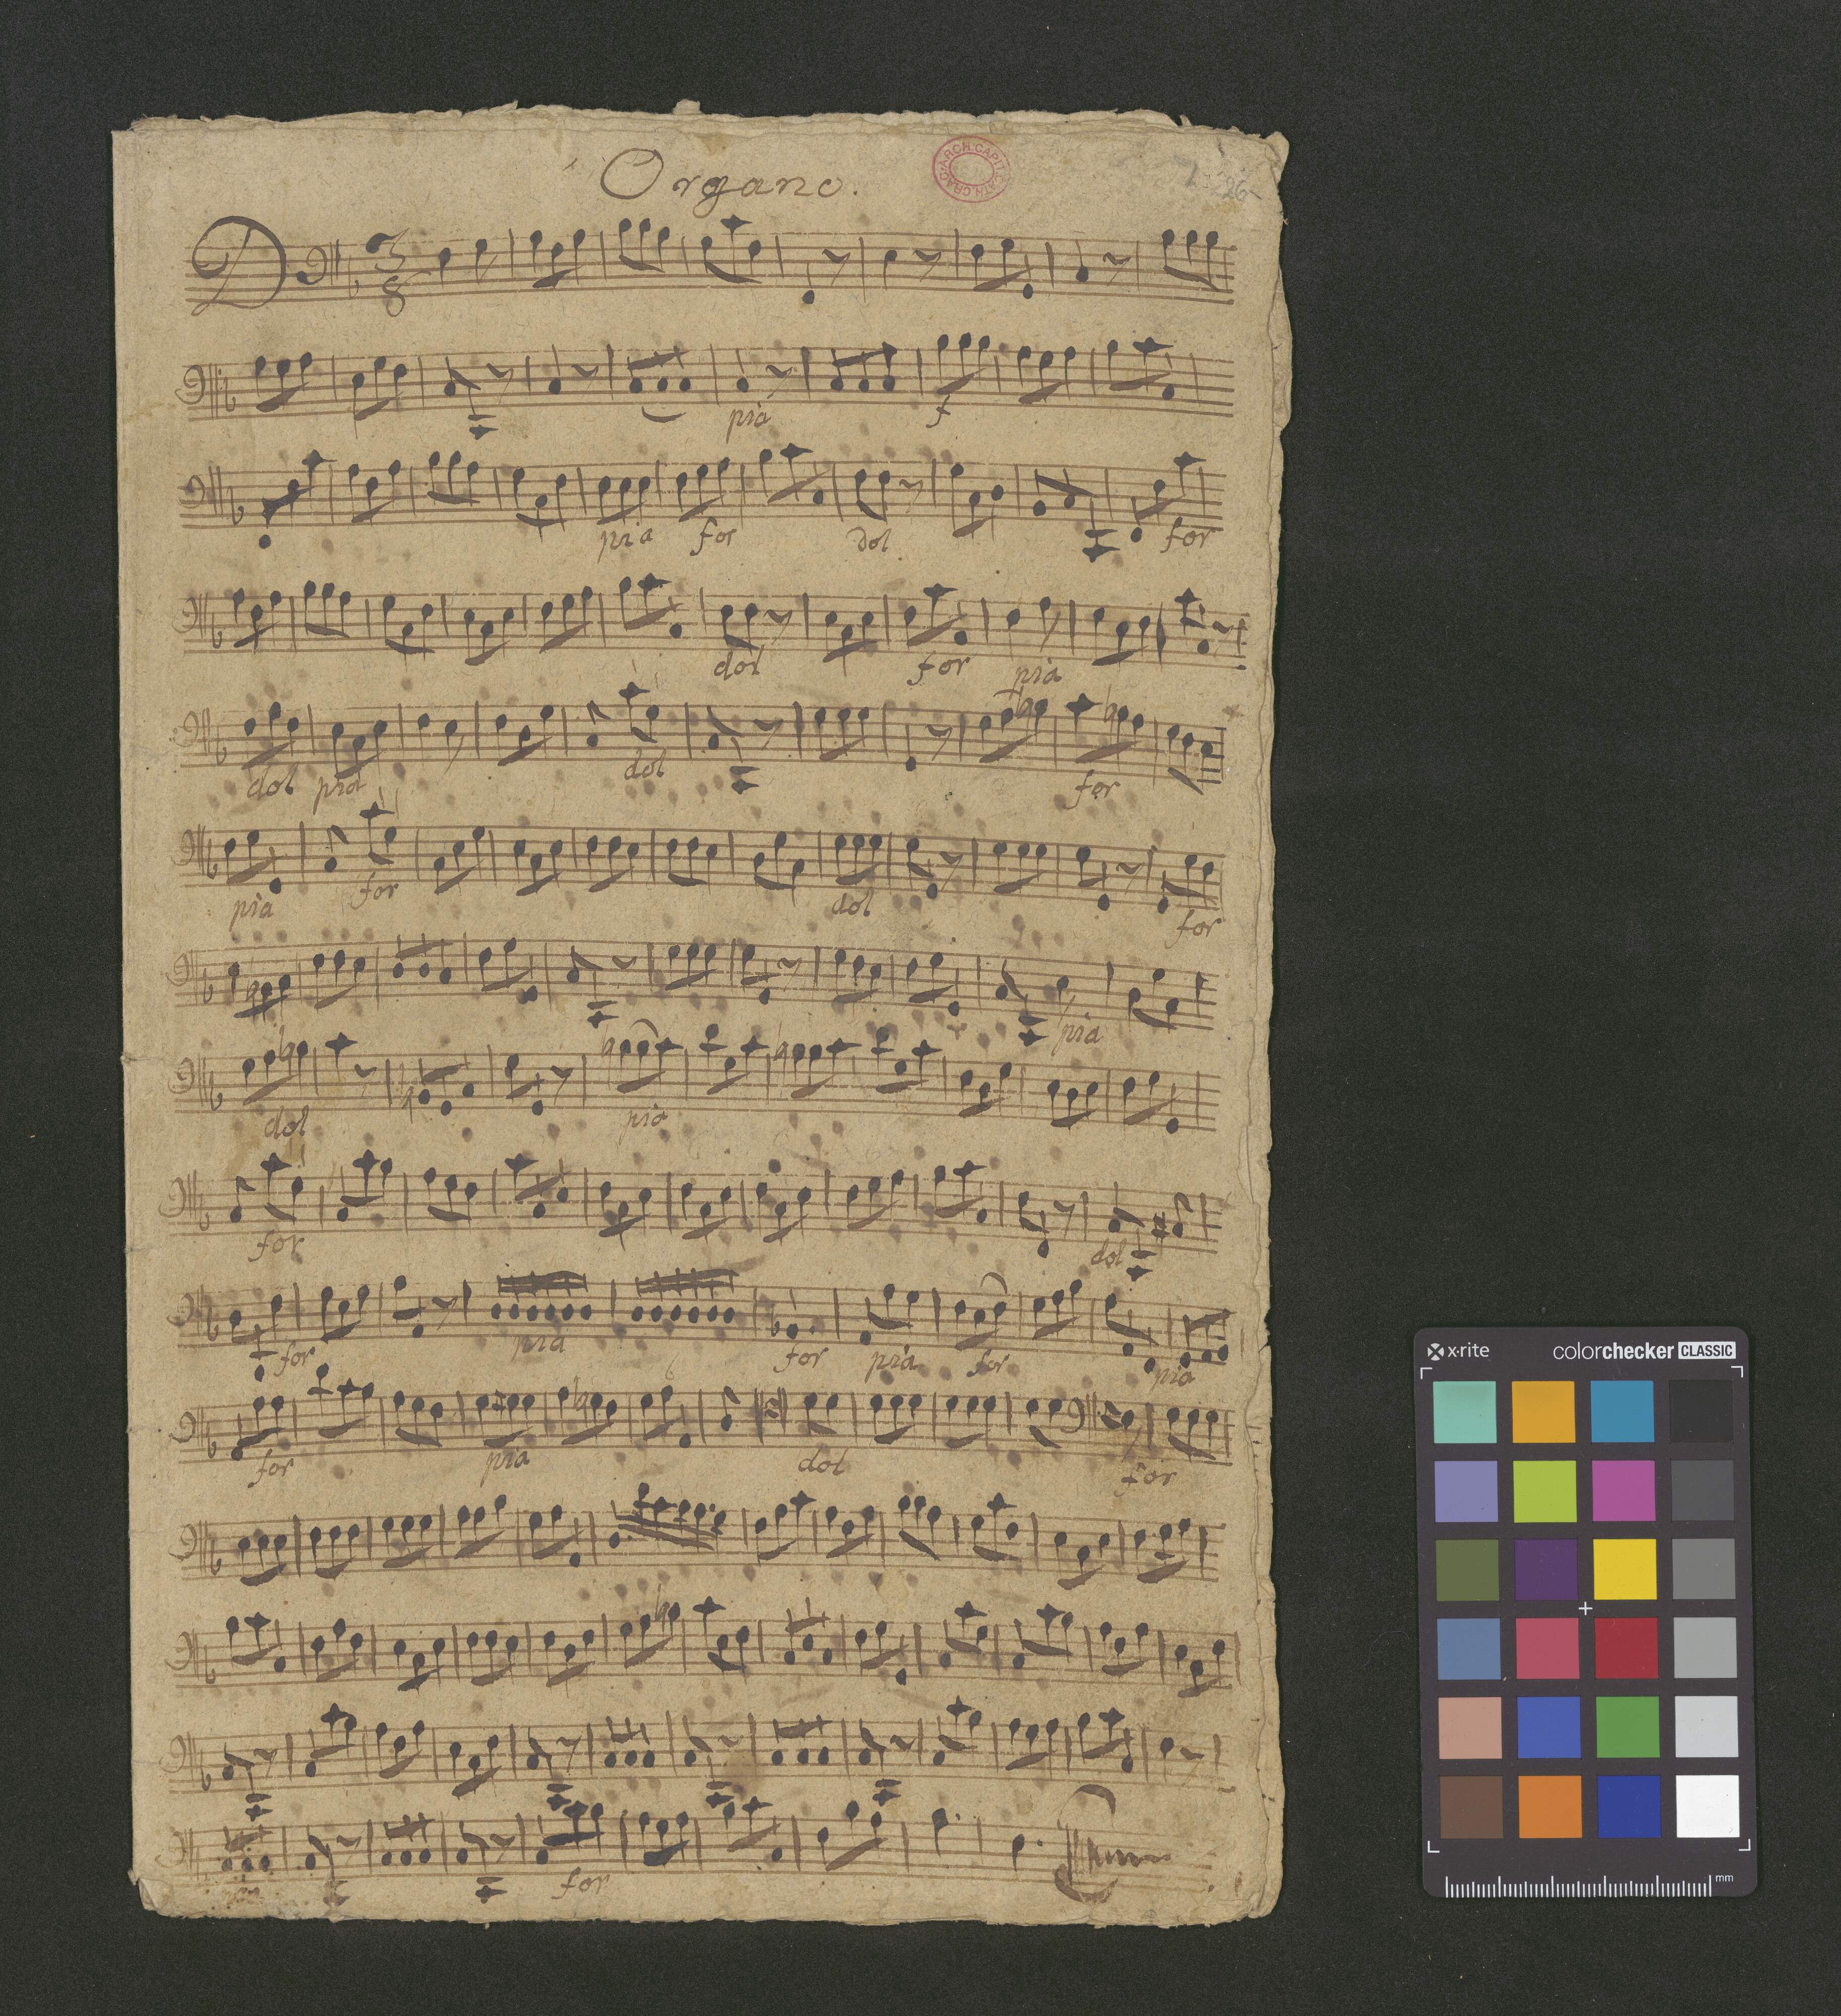 Organo.
ARCH. CAPIT. CATH. CRAC.
26
D 3/8
pia f
pia for dol for
dol for pia
dol pia dol for
pia for dol for
pia
dol pia
for dol
for pia for pia for pia
6
for pia dol for
for
x-rite colorchecker CLASSIC
mm